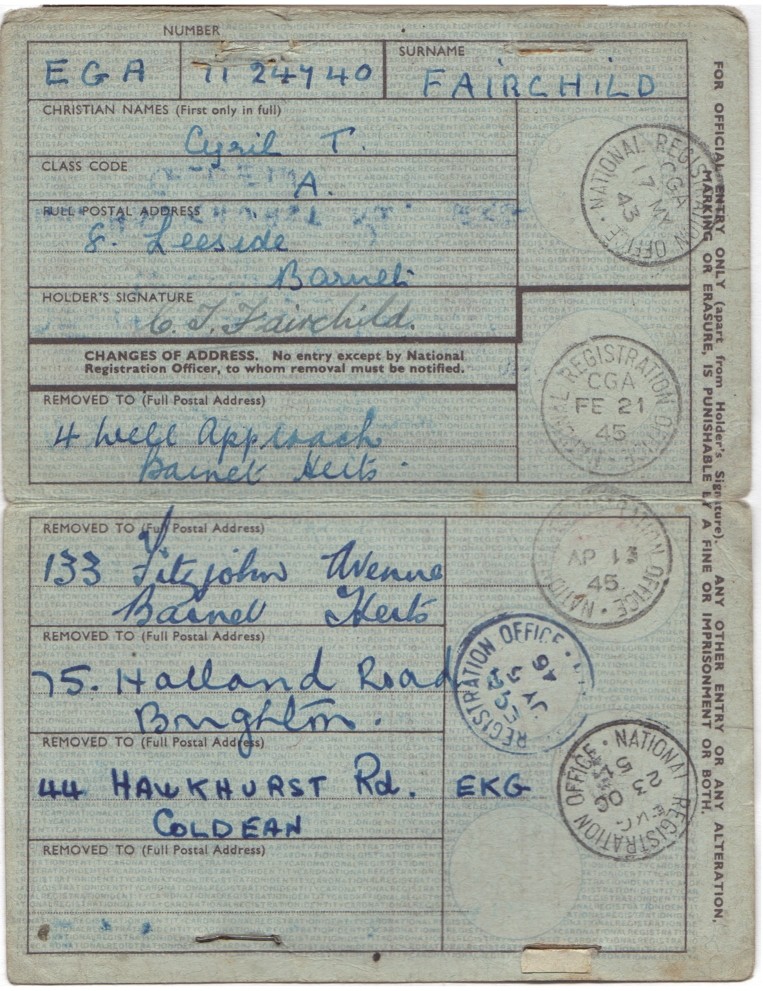 NUMBER
SURNAME
EGA
FAIRCHILD
CHRISTIAN NAMES (First only in full)
Cyril T.
CLASS CODE
A.
FULL POSTAL ADDRESS
8. Leeside
Barnet
HOLDER'S SIGNATURE
C. T. Fairchild.
CHANGES OF ADDRESS. No entry except by National
Registration Officer, to whom removal must be notified.
REMOVED TO (Full Postal Address)
4 Well Approach
Barnet Herts.
REMOVED TO (Full Postal Address)
133 Fitzjohn Avenue
Barnet Herts
REMOVED TO (Full Postal Address)
75. Halland Road
Brighton.
REMOVED TO (Full Postal Address)
44 HAWKHURST Rd. EKG
COLDEAN
REMOVED TO (Full Postal Address)
NATIONAL REGISTRATION OFFICE
CGA
17 MY
43
NATIONAL REGISTRATION OFFICE
CGA
FE 21
45
NATIONAL REGISTRATION OFFICE
AP 13
45
REGISTRATION OFFICE
NATIONAL REGISTRATION OFFICE
EKG
23 OC
FOR OFFICIAL ENTRY ONLY (apart from Holder's Signature). ANY OTHER ENTRY OR ANY ALTERATION,
MARKING OR ERASURE, IS PUNISHABLE BY A FINE OR IMPRISONMENT OR BOTH.